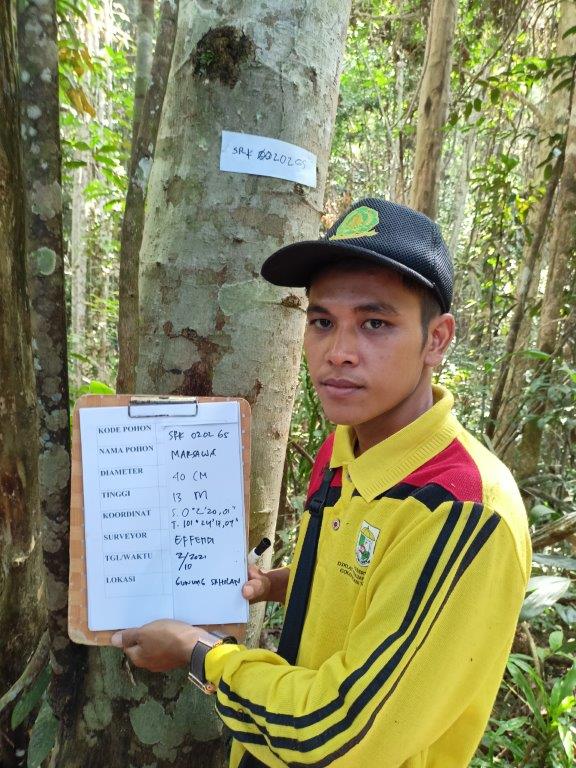 SRK 020265
KODE POHON SRK 020265
NAMA POHON MARSAWA
DIAMETER 40 CM
TINGGI 13 M
KOORDINAT S. 0°2'20,01"
T. 101°24'17,09"
SURVEYOR EFFENDI
TGL/WAKTU 2/2021
/10
LOKASI GUNUNG SAHILAN